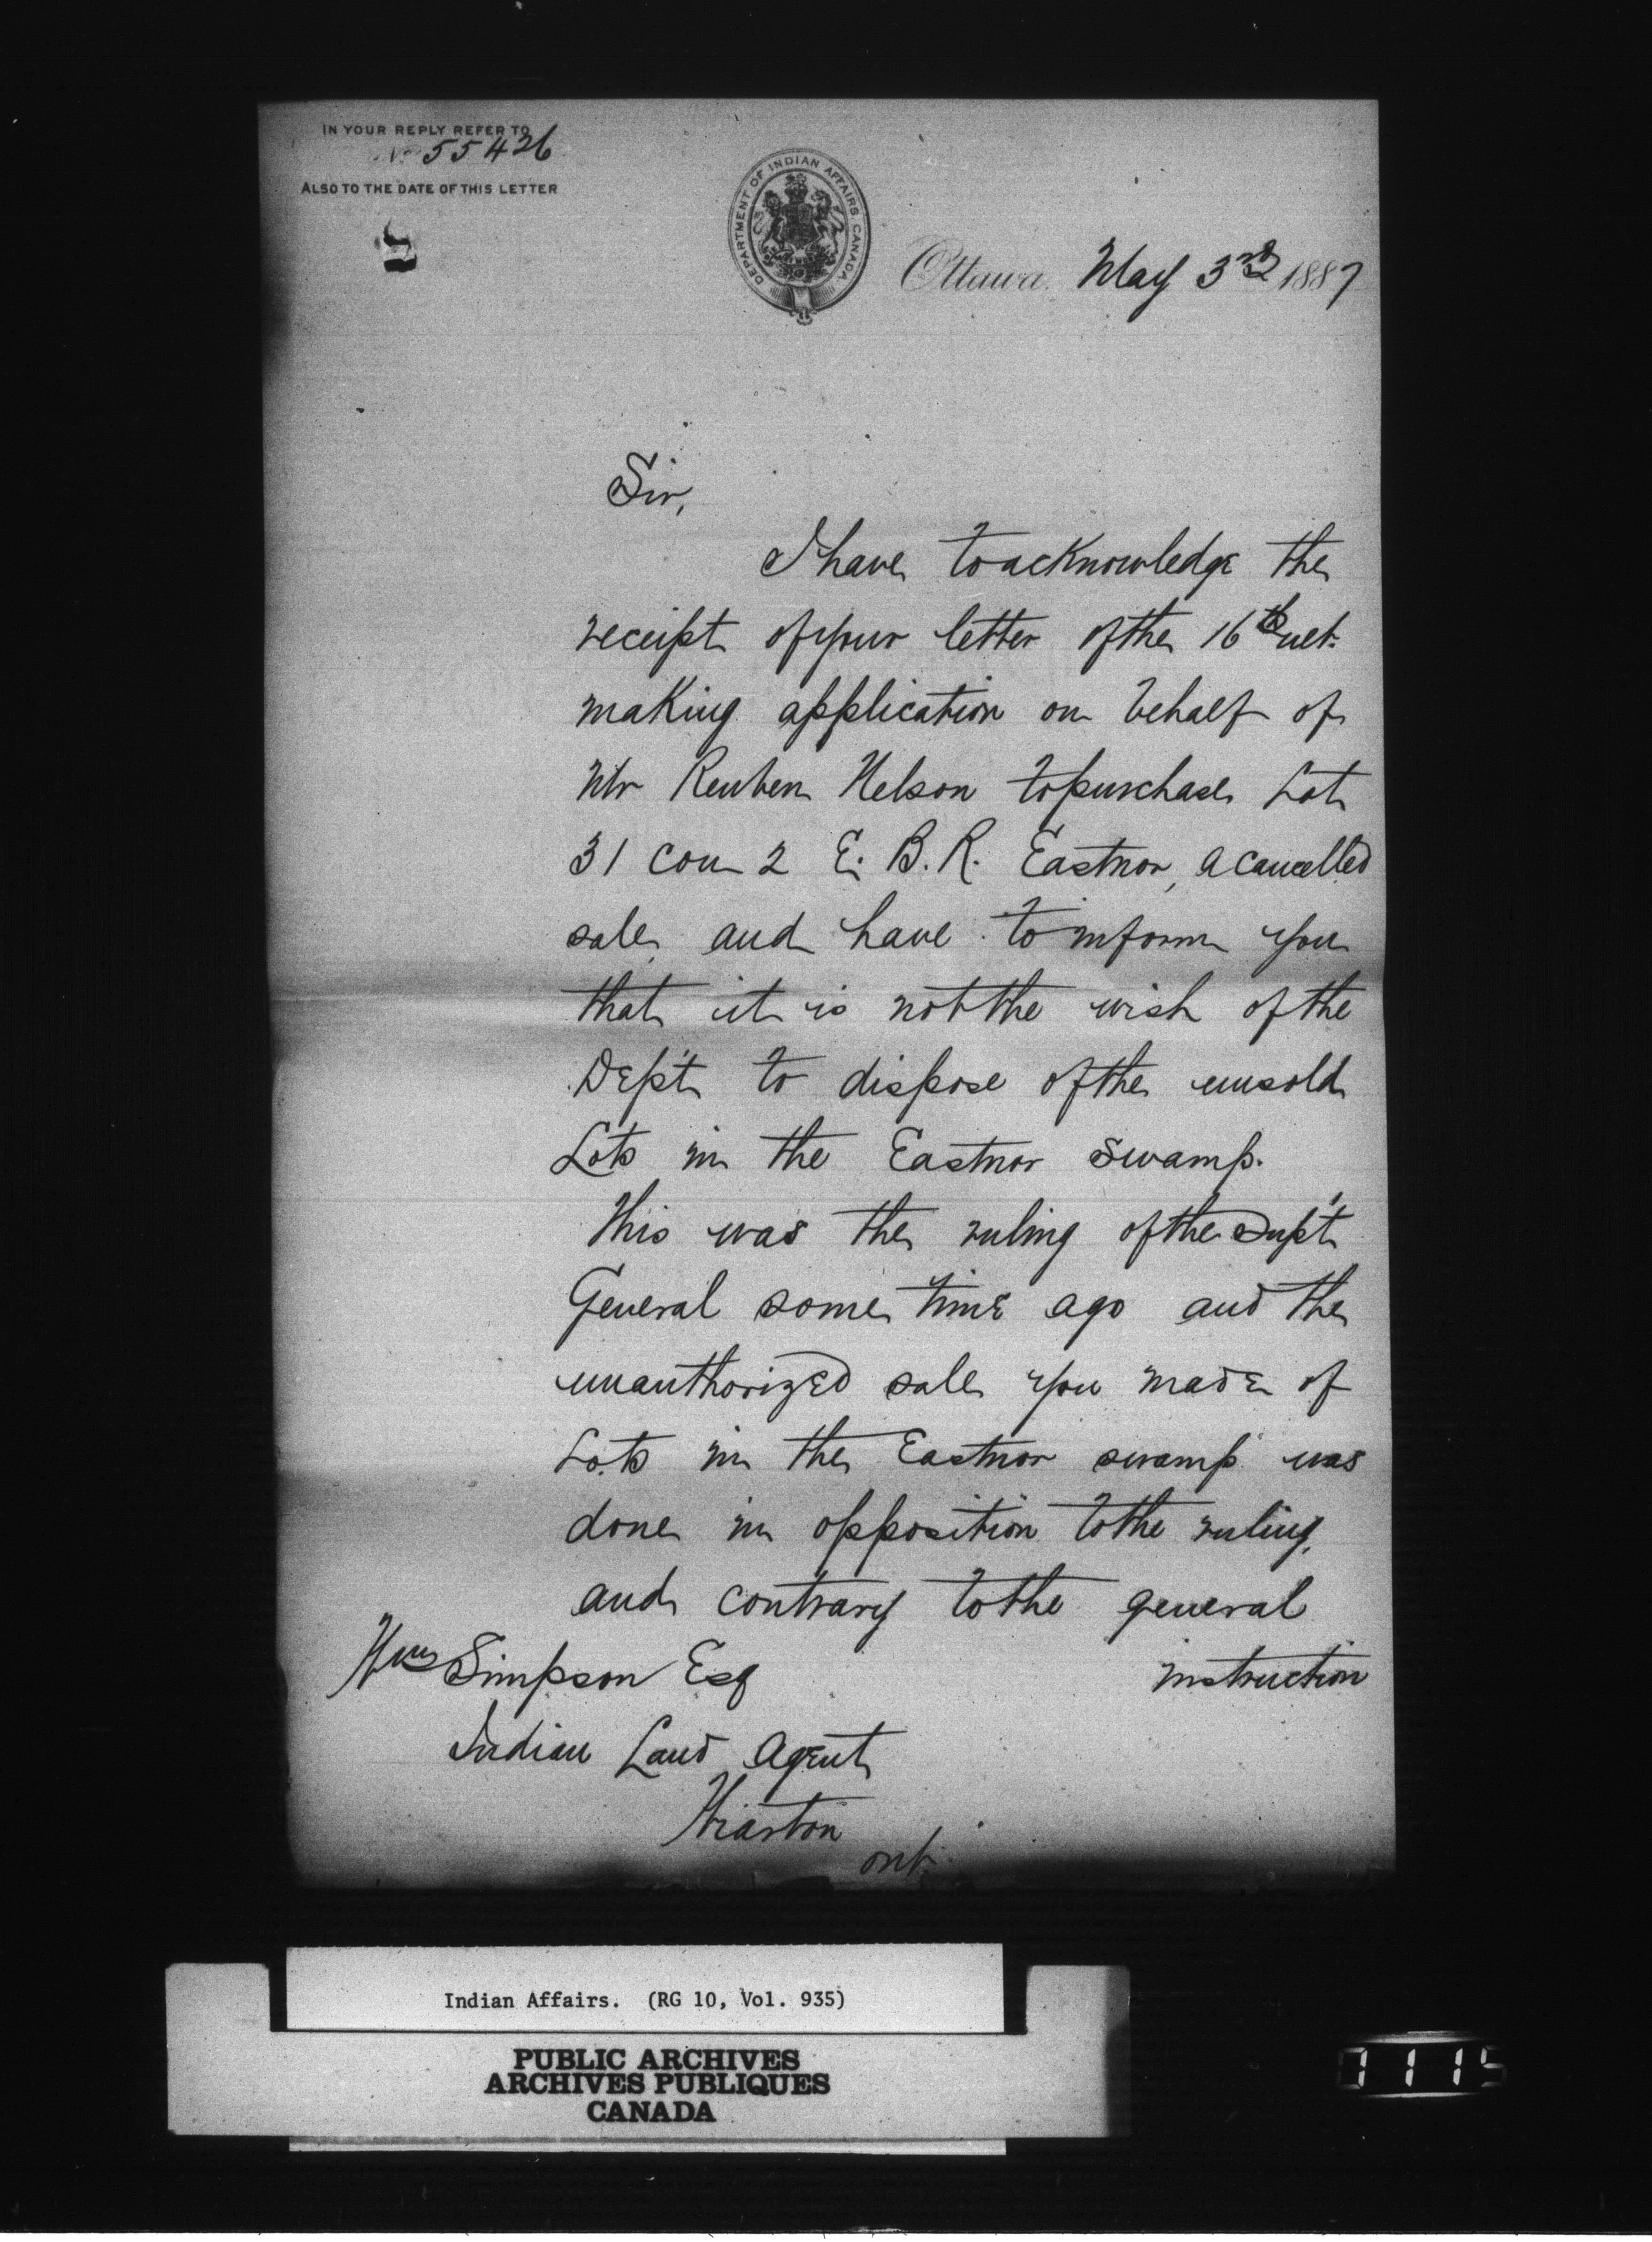 IN YOUR REPLY REFER TO
No 55426
ALSO TO THE DATE OF THIS LETTER
DEPARTMENT OF INDIAN AFFAIRS. CANADA
Ottawa. May 3rd 1887
Sir,
I have to acknowledge the
receipt of your letter of the 16th ult.
making application on behalf of
Mr Reuben Nelson to purchase Lot
31 con 2 E. B. R. Eastnor, a cancelled
sale, and have to inform you
that it is not the wish of the
Dep't to dispose of the unsold
Lots in the Eastnor Swamp.
This was the ruling of the Sup't
General some time ago and the
unauthorized sale you made of
Lots in the Eastnor swamp was
done in opposition to the ruling,
and contrary to the general
instruction
Wm Simpson Esq
Indian Land Agent
Wiarton
Ont.
Indian Affairs. (RG 10, Vol. 935)
PUBLIC ARCHIVES
ARCHIVES PUBLIQUES
CANADA
1115